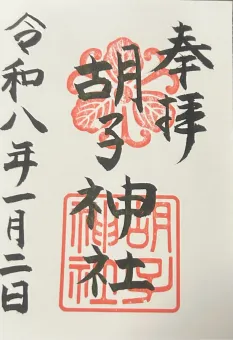 奉拝
胡子神社
令和八年一月二日
胡子
神社